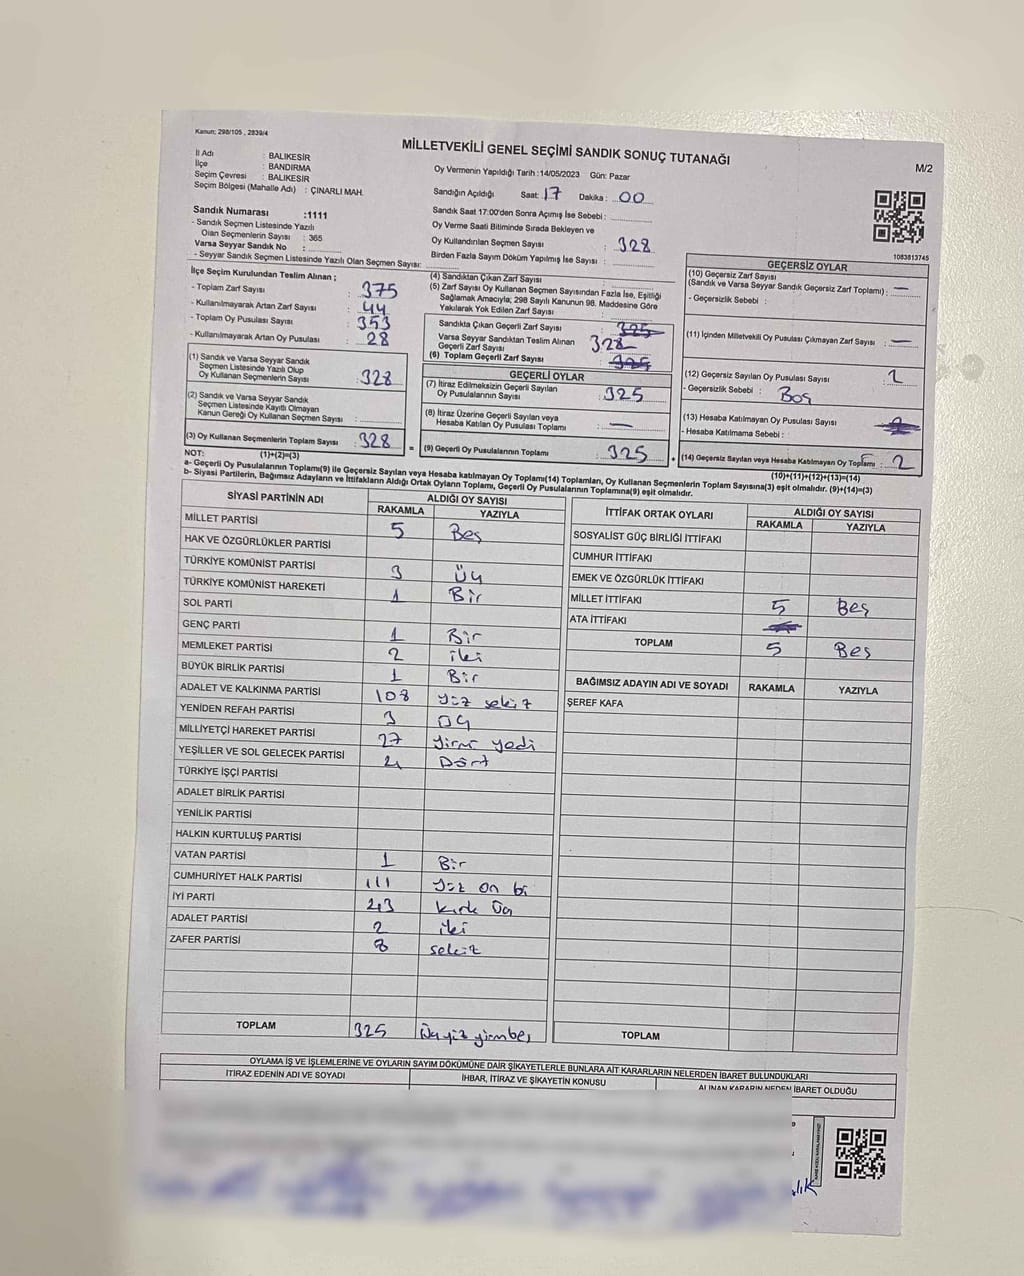 Kanun: 298/105 , 2839/4
MİLLETVEKİLİ GENEL SEÇİMİ SANDIK SONUÇ TUTANAĞI
M/2
İl Adı : BALIKESİR
İlçe : BANDIRMA
Seçim Çevresi : BALIKESİR
Seçim Bölgesi (Mahalle Adı) : ÇINARLI MAH.
Oy Vermenin Yapıldığı Tarih :14/05/2023 Gün: Pazar
Sandığın Açıldığı Saat: 17 Dakika : 00
Sandık Numarası :1111
- Sandık Seçmen Listesinde Yazılı
Olan Seçmenlerin Sayısı : 365
Varsa Seyyar Sandık No :
- Seyyar Sandık Seçmen Listesinde Yazılı Olan Seçmen Sayısı:
Sandık Saat 17:00'den Sonra Açımış İse Sebebi :
Oy Verme Saati Bitiminde Sırada Bekleyen ve
Oy Kullandırılan Seçmen Sayısı : 328
Birden Fazla Sayım Döküm Yapılmış İse Sayısı :
1083813745
İlçe Seçim Kurulundan Teslim Alınan ;
- Toplam Zarf Sayısı : 375
- Kullanılmayarak Artan Zarf Sayısı : 44
- Toplam Oy Pusulası Sayısı : 353
- Kullanılmayarak Artan Oy Pusulası : 28
(1) Sandık ve Varsa Seyyar Sandık
Seçmen Listesinde Yazılı Olup
Oy Kullanan Seçmenlerin Sayısı : 328
(2) Sandık ve Varsa Seyyar Sandık
Seçmen Listesinde Kayıtlı Olmayan
Kanun Gereği Oy Kullanan Seçmen Sayısı :
(3) Oy Kullanan Seçmenlerin Toplam Sayısı : 328
(4) Sandıktan Çıkan Zarf Sayısı
(5) Zarf Sayısı Oy Kullanan Seçmen Sayısından Fazla İse, Eşitliği
Sağlamak Amacıyla; 298 Sayılı Kanunun 98. Maddesine Göre
Yakılarak Yok Edilen Zarf Sayısı
Sandıkta Çıkan Geçerli Zarf Sayısı : 325
Varsa Seyyar Sandıktan Teslim Alınan
Geçerli Zarf Sayısı 328
(6) Toplam Geçerli Zarf Sayısı : 325
GEÇERLİ OYLAR
(7) İtiraz Edilmeksizin Geçerli Sayılan
Oy Pusulasının Sayısı : 325
(8) İtiraz Üzerine Geçerli Sayılan veya
Hesaba Katılan Oy Pusulası Toplamı : —
= (9) Geçerli Oy Pusulalarının Toplamı : 325 +
GEÇERSİZ OYLAR
(10) Geçersiz Zarf Sayısı
(Sandık ve Varsa Seyyar Sandık Geçersiz Zarf Toplamı) : —
- Geçersizlik Sebebi :
(11) İçinden Milletvekili Oy Pusulası Çıkmayan Zarf Sayısı : —
(12) Geçersiz Sayılan Oy Pusulası Sayısı : 2
- Geçersizlik Sebebi : Boş
(13) Hesaba Katılmayan Oy Pusulası Sayısı :
- Hesaba Katılmama Sebebi :
(14) Geçersiz Sayılan veya Hesaba Katılmayan Oy Toplamı : 2
NOT: (1)+(2)=(3)
(10)+(11)+(12)+(13)=(14)
a- Geçerli Oy Pusulalarının Toplamı(9) ile Geçersiz Sayılan veya Hesaba katılmayan Oy Toplamı(14) Toplamları, Oy Kullanan Seçmenlerin Toplam Sayısına(3) eşit olmalıdır. (9)+(14)=(3)
b- Siyasi Partilerin, Bağımsız Adayların ve İttifakların Aldığı Ortak Oyların Toplamı, Geçerli Oy Pusulalarının Toplamına(9) eşit olmalıdır.
SİYASİ PARTİNİN ADI ALDIĞI OY SAYISI
RAKAMLA YAZIYLA
MİLLET PARTİSİ 5 Beş
HAK VE ÖZGÜRLÜKLER PARTİSİ
TÜRKİYE KOMÜNİST PARTİSİ 3 Üç
TÜRKİYE KOMÜNİST HAREKETİ 1 Bir
SOL PARTİ
GENÇ PARTİ 1 Bir
MEMLEKET PARTİSİ 2 iki
BÜYÜK BİRLİK PARTİSİ 1 Bir
ADALET VE KALKINMA PARTİSİ 108 Yüz sekiz
YENİDEN REFAH PARTİSİ 3 Üç
MİLLİYETÇİ HAREKET PARTİSİ 27 Yirmi yedi
YEŞİLLER VE SOL GELECEK PARTİSİ 4 Dört
TÜRKİYE İŞÇİ PARTİSİ
ADALET BİRLİK PARTİSİ
YENİLİK PARTİSİ
HALKIN KURTULUŞ PARTİSİ
VATAN PARTİSİ 1 Bir
CUMHURİYET HALK PARTİSİ 111 Yüz on bi
İYİ PARTİ 43 Kırk Üç
ADALET PARTİSİ 2 iki
ZAFER PARTİSİ 8 sekiz
TOPLAM 325 Üçyüz yirmbeş
İTTİFAK ORTAK OYLARI ALDIĞI OY SAYISI
RAKAMLA YAZIYLA
SOSYALİST GÜÇ BİRLİĞİ İTTİFAKI
CUMHUR İTTİFAKI
EMEK VE ÖZGÜRLÜK İTTİFAKI
MİLLET İTTİFAKI 5 Beş
ATA İTTİFAKI
TOPLAM 5 Beş
BAĞIMSIZ ADAYIN ADI VE SOYADI RAKAMLA YAZIYLA
ŞEREF KAFA
TOPLAM
OYLAMA İŞ VE İŞLEMLERİNE VE OYLARIN SAYIM DÖKÜMÜNE DAİR ŞİKAYETLERLE BUNLARA AİT KARARLARIN NELERDEN İBARET BULUNDUKLARI
İTİRAZ EDENİN ADI VE SOYADI İHBAR, İTİRAZ VE ŞİKAYETİN KONUSU ALINAN KARARIN NEDEN İBARET OLDUĞU